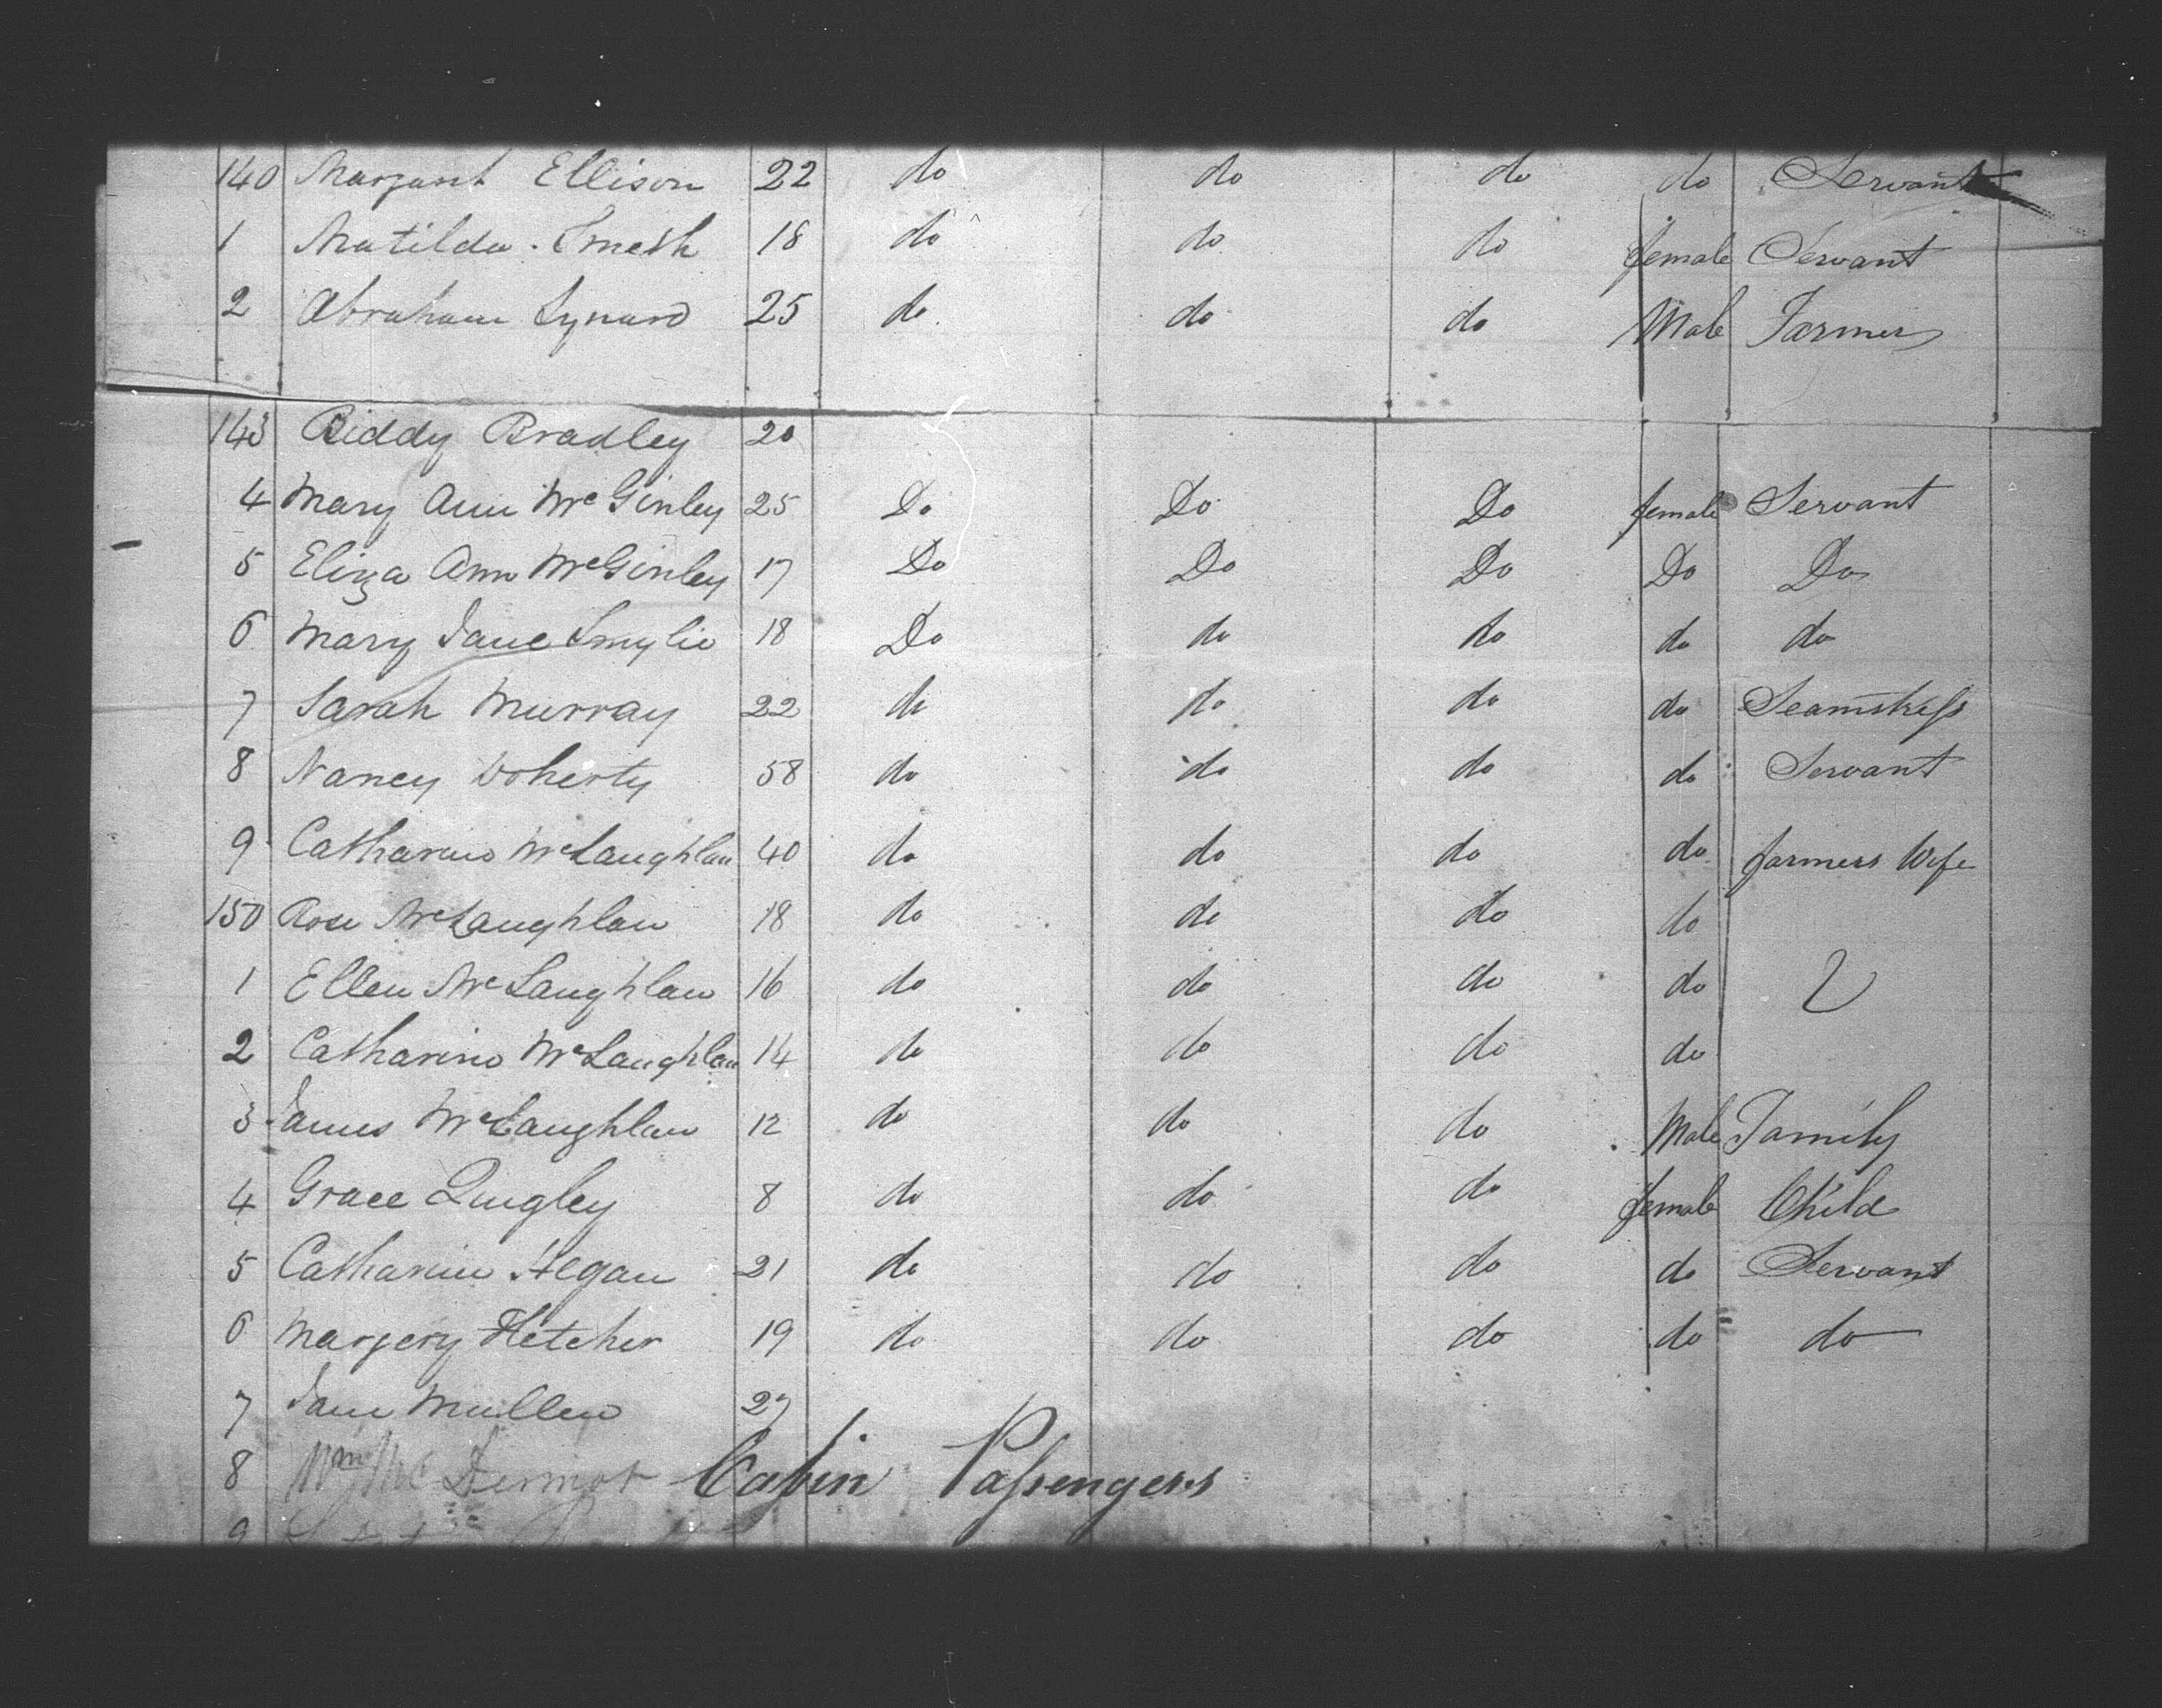 140 Margaret Ellison 22 do do do do Servant
1 Matilda Smeth 18 do do do female Servant
2 Abraham Lynard 25 do do do Male Farmer
143 Biddy Bradley 20
4 Mary Ann McGinley 25 Do Do Do female Servant
5 Eliza Ann McGinley 17 Do Do Do Do Do
6 Mary Jane Smylie 18 Do do do do do
7 Sarah Murray 22 do do do do Seamstress
8 Nancy Doherty 58 do do do do Servant
9 Catharine McLaughlan 40 do do do do farmers Wife
150 Rose McLaughlan 18 do do do do
1 Ellen McLaughlan 16 do do do do
2 Catharine McLaughlan 14 do do do do
3 James McLaughlan 12 do do do Male Family
4 Grace Quigley 8 do do do female Child
5 Catharine Hegan 21 do do do do Servant
6 Margery Fletcher 19 do do do do do
7 Jane Mullen 27
8 Wm McDermot Cabin Passengers
9